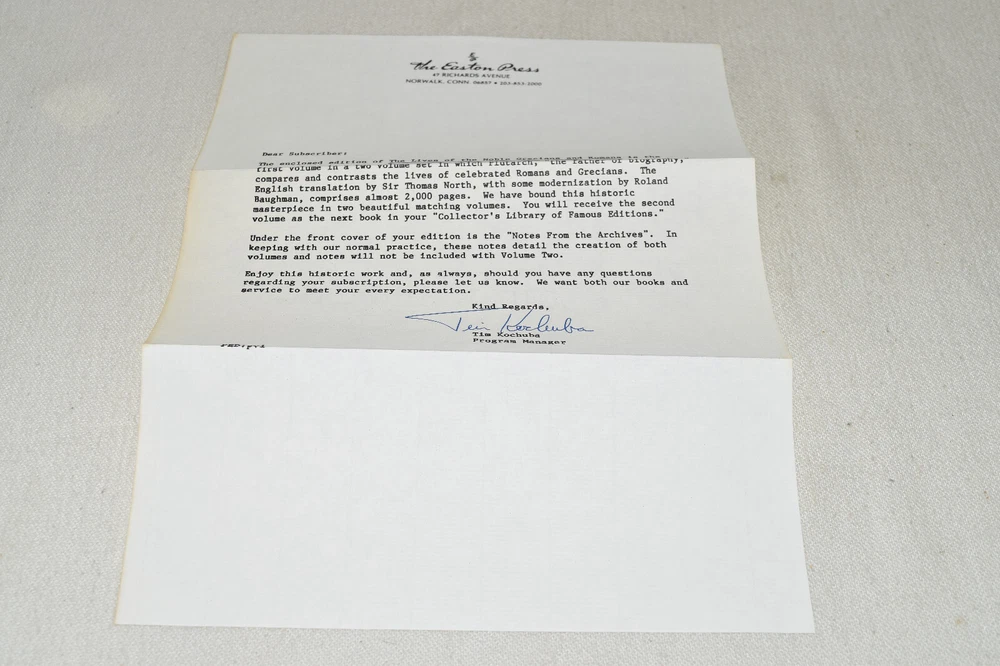 The Easton Press
47 RICHARDS AVENUE
NORWALK, CONN. 06857 • 203-853-2000
Dear Subscriber:
The enclosed edition of The Lives of the Noble Grecians and Romans is the
first volume in a two volume set in which Plutarch, "the father of biography,"
compares and contrasts the lives of celebrated Romans and Grecians. The
English translation by Sir Thomas North, with some modernization by Roland
Baughman, comprises almost 2,000 pages. We have bound this historic
masterpiece in two beautiful matching volumes. You will receive the second
volume as the next book in your "Collector's Library of Famous Editions."
Under the front cover of your edition is the "Notes From the Archives". In
keeping with our normal practice, these notes detail the creation of both
volumes and notes will not be included with Volume Two.
Enjoy this historic work and, as always, should you have any questions
regarding your subscription, please let us know. We want both our books and
service to meet your every expectation.
Kind Regards,
Tim Kochuba
Tim Kochuba
Program Manager